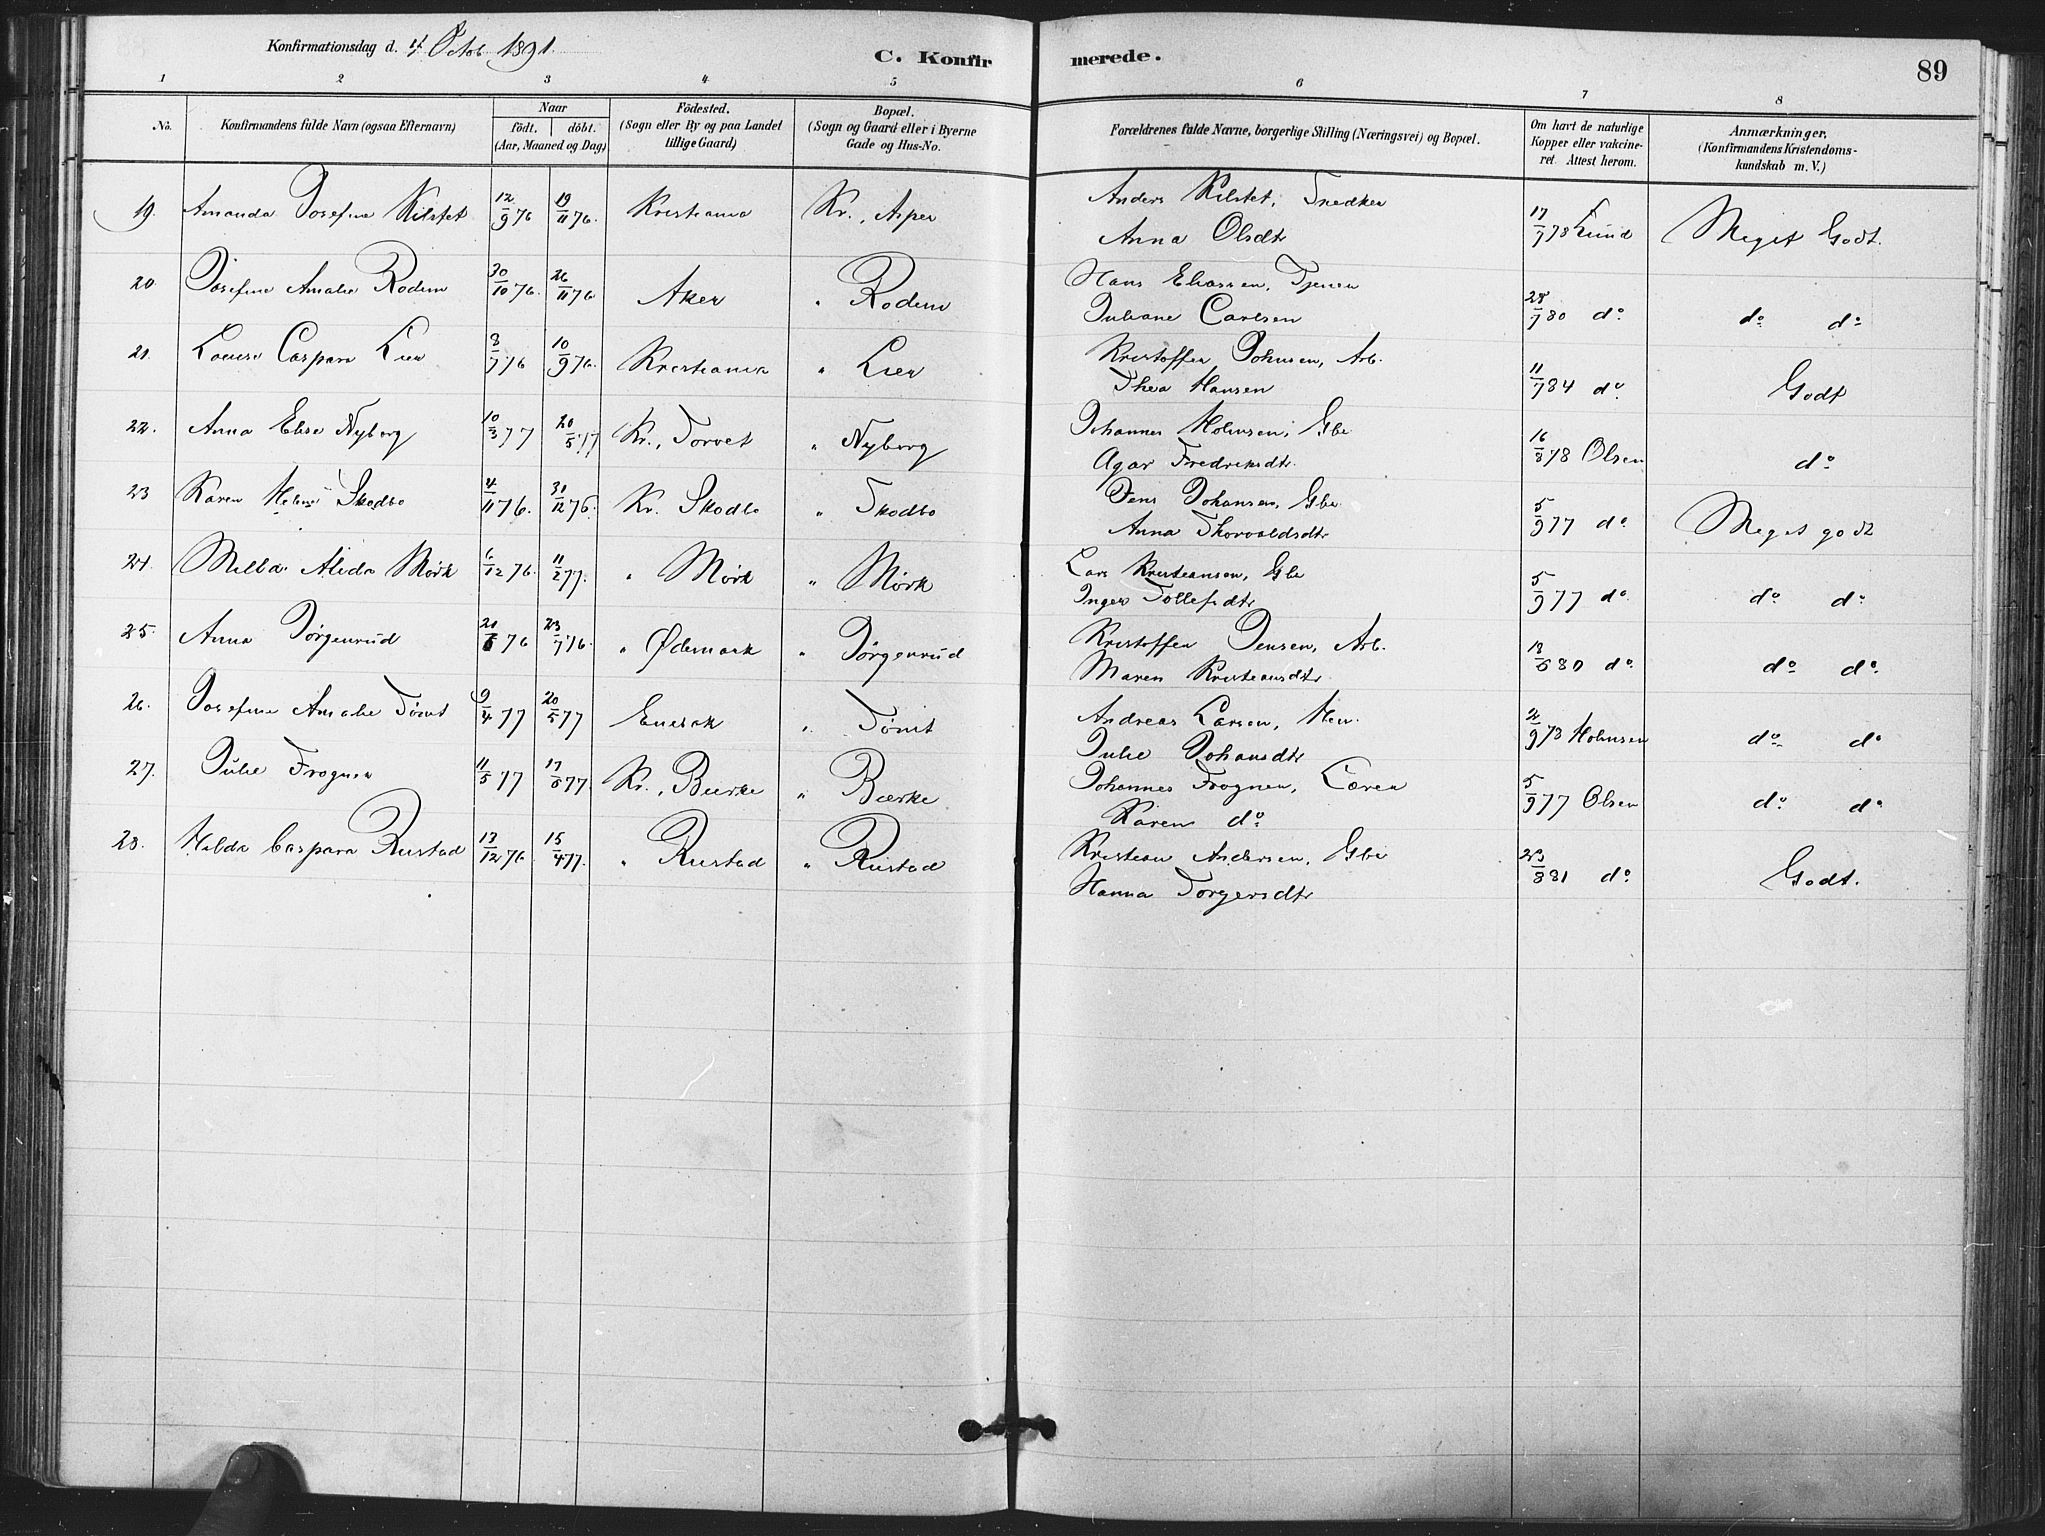 Konfirmationsdag d. 4 Octob. 1891.
C. Konfir merede. 89
1 2 3 4 5 6 7 8
No. Konfirmandens fulde Navn (ogsaa Efternavn) Naar födt. döbt. (Aar, Maaned og Dag) Födested. (Sogn eller By og paa Landet tillige Gaard) Bopæl. (Sogn og Gaard eller i Byerne Gade og Hus-No. Forældrenes fulde Navne, borgerlige Stilling (Næringsvei) og Bopæl. Om havt de naturlige Kopper eller vakcineret. Attest herom. Anmærkninger. (Konfirmandens Kristendomskundskab m. V.)
19. Amanda Josefine Kilstet 12/9 76 19/11 76. Kristiania Kr., Asper Anders Kilstet, Snedker 17/7 78 Lund Meget Godt.
Anna Olsdtr
20. Josefine Amalie Rodem 30/10 76. 26/11 76 Aker " Rodem Hans Eliassen, Tjener 28/7 80 do. do do
Juliane Carlsen
21. Lovise Caspara Lier 8/7 76 10/9 76. Kristiania " Lier Kristoffer Johnsen, Arb. 11/7 84 do. Godt
Thea Hansen
22. Anna Elise Nyborg 10/3 77 20/5 77 Kr., Torvet " Nyborg Johannes Holmsen, Gbr 16/8 78 Olsen do
Agar Fredriksdtr.
23 Karen Helene Skodbo 4/11 76. 31/12 76. Kr. Skodbo " Skodbo Jens Johansen, Gbr. 5/9 77 do Meget godt
Anna Thorvaldsdtr
24. Milla Alida Mörk 6/12 76. 11/2 77. " Mörk " Mörk Lars Kristiansen, Gbr 5/9 77 do. do do
Inger Tollefsdtr
25. Anna Jörgenrud 20/6 76 23/7 76. " Ødemark " Jörgenrud Kristoffer Jensen, Arb. 18/6 80 do. do do
Maren Kristiansdtr
26. Josefine Amalie Tömt 9/4 77 20/5 77 Enebak " Tömt Andreas Larsen, 2/9 78 Holmsen do do
Julie Johansdtr
27. Julie Frogner 11/5 77 17/6 77. Kr., Bærke " Bærke Johannes Frogner, Lærer 5/9 77 Olsen do do
Karen do
28. Hilda Caspara Rustad 13/12 76 15/4 77. " Rustad " Rustad Kristian Andersen, Gbr 23/8 81 do. Godt.
Hanna Torgersdtr